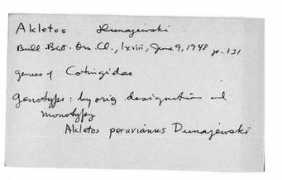 Akletos Dunajewski
Bull. Brit. Orn. Cl., lxviii, June 9, 1948 p. 131
genus of Cotingidae
Genotype: by orig designation and
monotypy
Akletos peruvianus Dunajewski